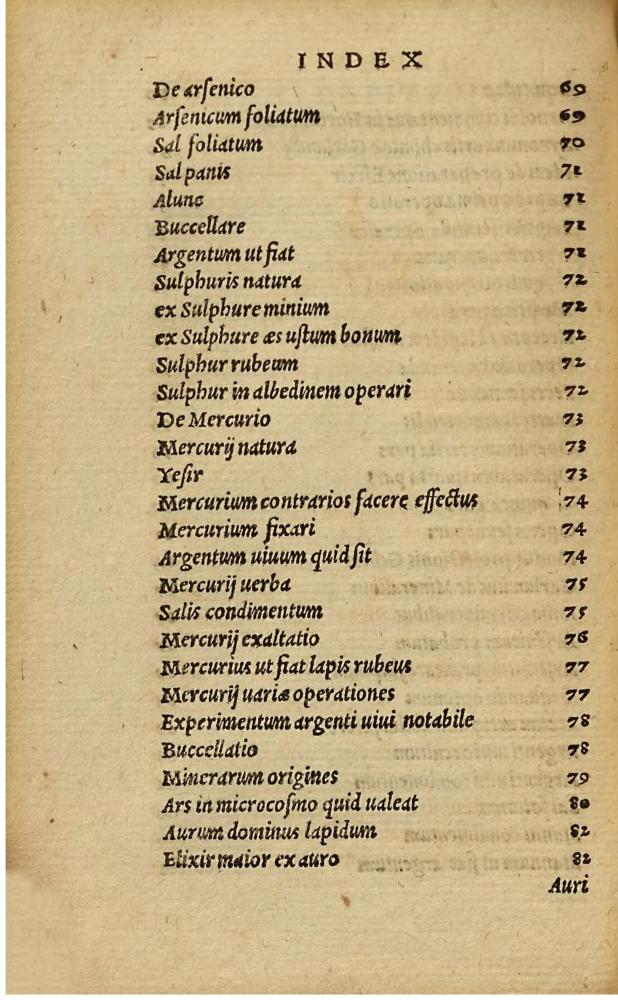 INDEX
De arſenico 69
Arſenicum foliatum 69
Sal foliatum 70
Sal panis 71
Alune 71
Buccellare 71
Argentum ut fiat 71
Sulphuris natura 72
ex Sulphure minium 72
ex Sulphure æs uſtum bonum 72
Sulphur rubeum 72
Sulphur in albedinem operari 72
De Mercurio 73
Mercurij natura 73
Yeſir 73
Mercurium contrarios facere effectus 74
Mercurium fixari 74
Argentum uiuum quid ſit 74
Mercurij uerba 75
Salis condimentum 75
Mercurij exaltatio 76
Mercurius ut fiat lapis rubeus 77
Mercurij uariæ operationes 77
Experimentum argenti uiui notabile 78
Buccellatio 78
Minerarum origines 79
Ars in microcoſmo quid ualeat 80
Aurum dominus lapidum 82
Elixir maior ex auro 82
Auri